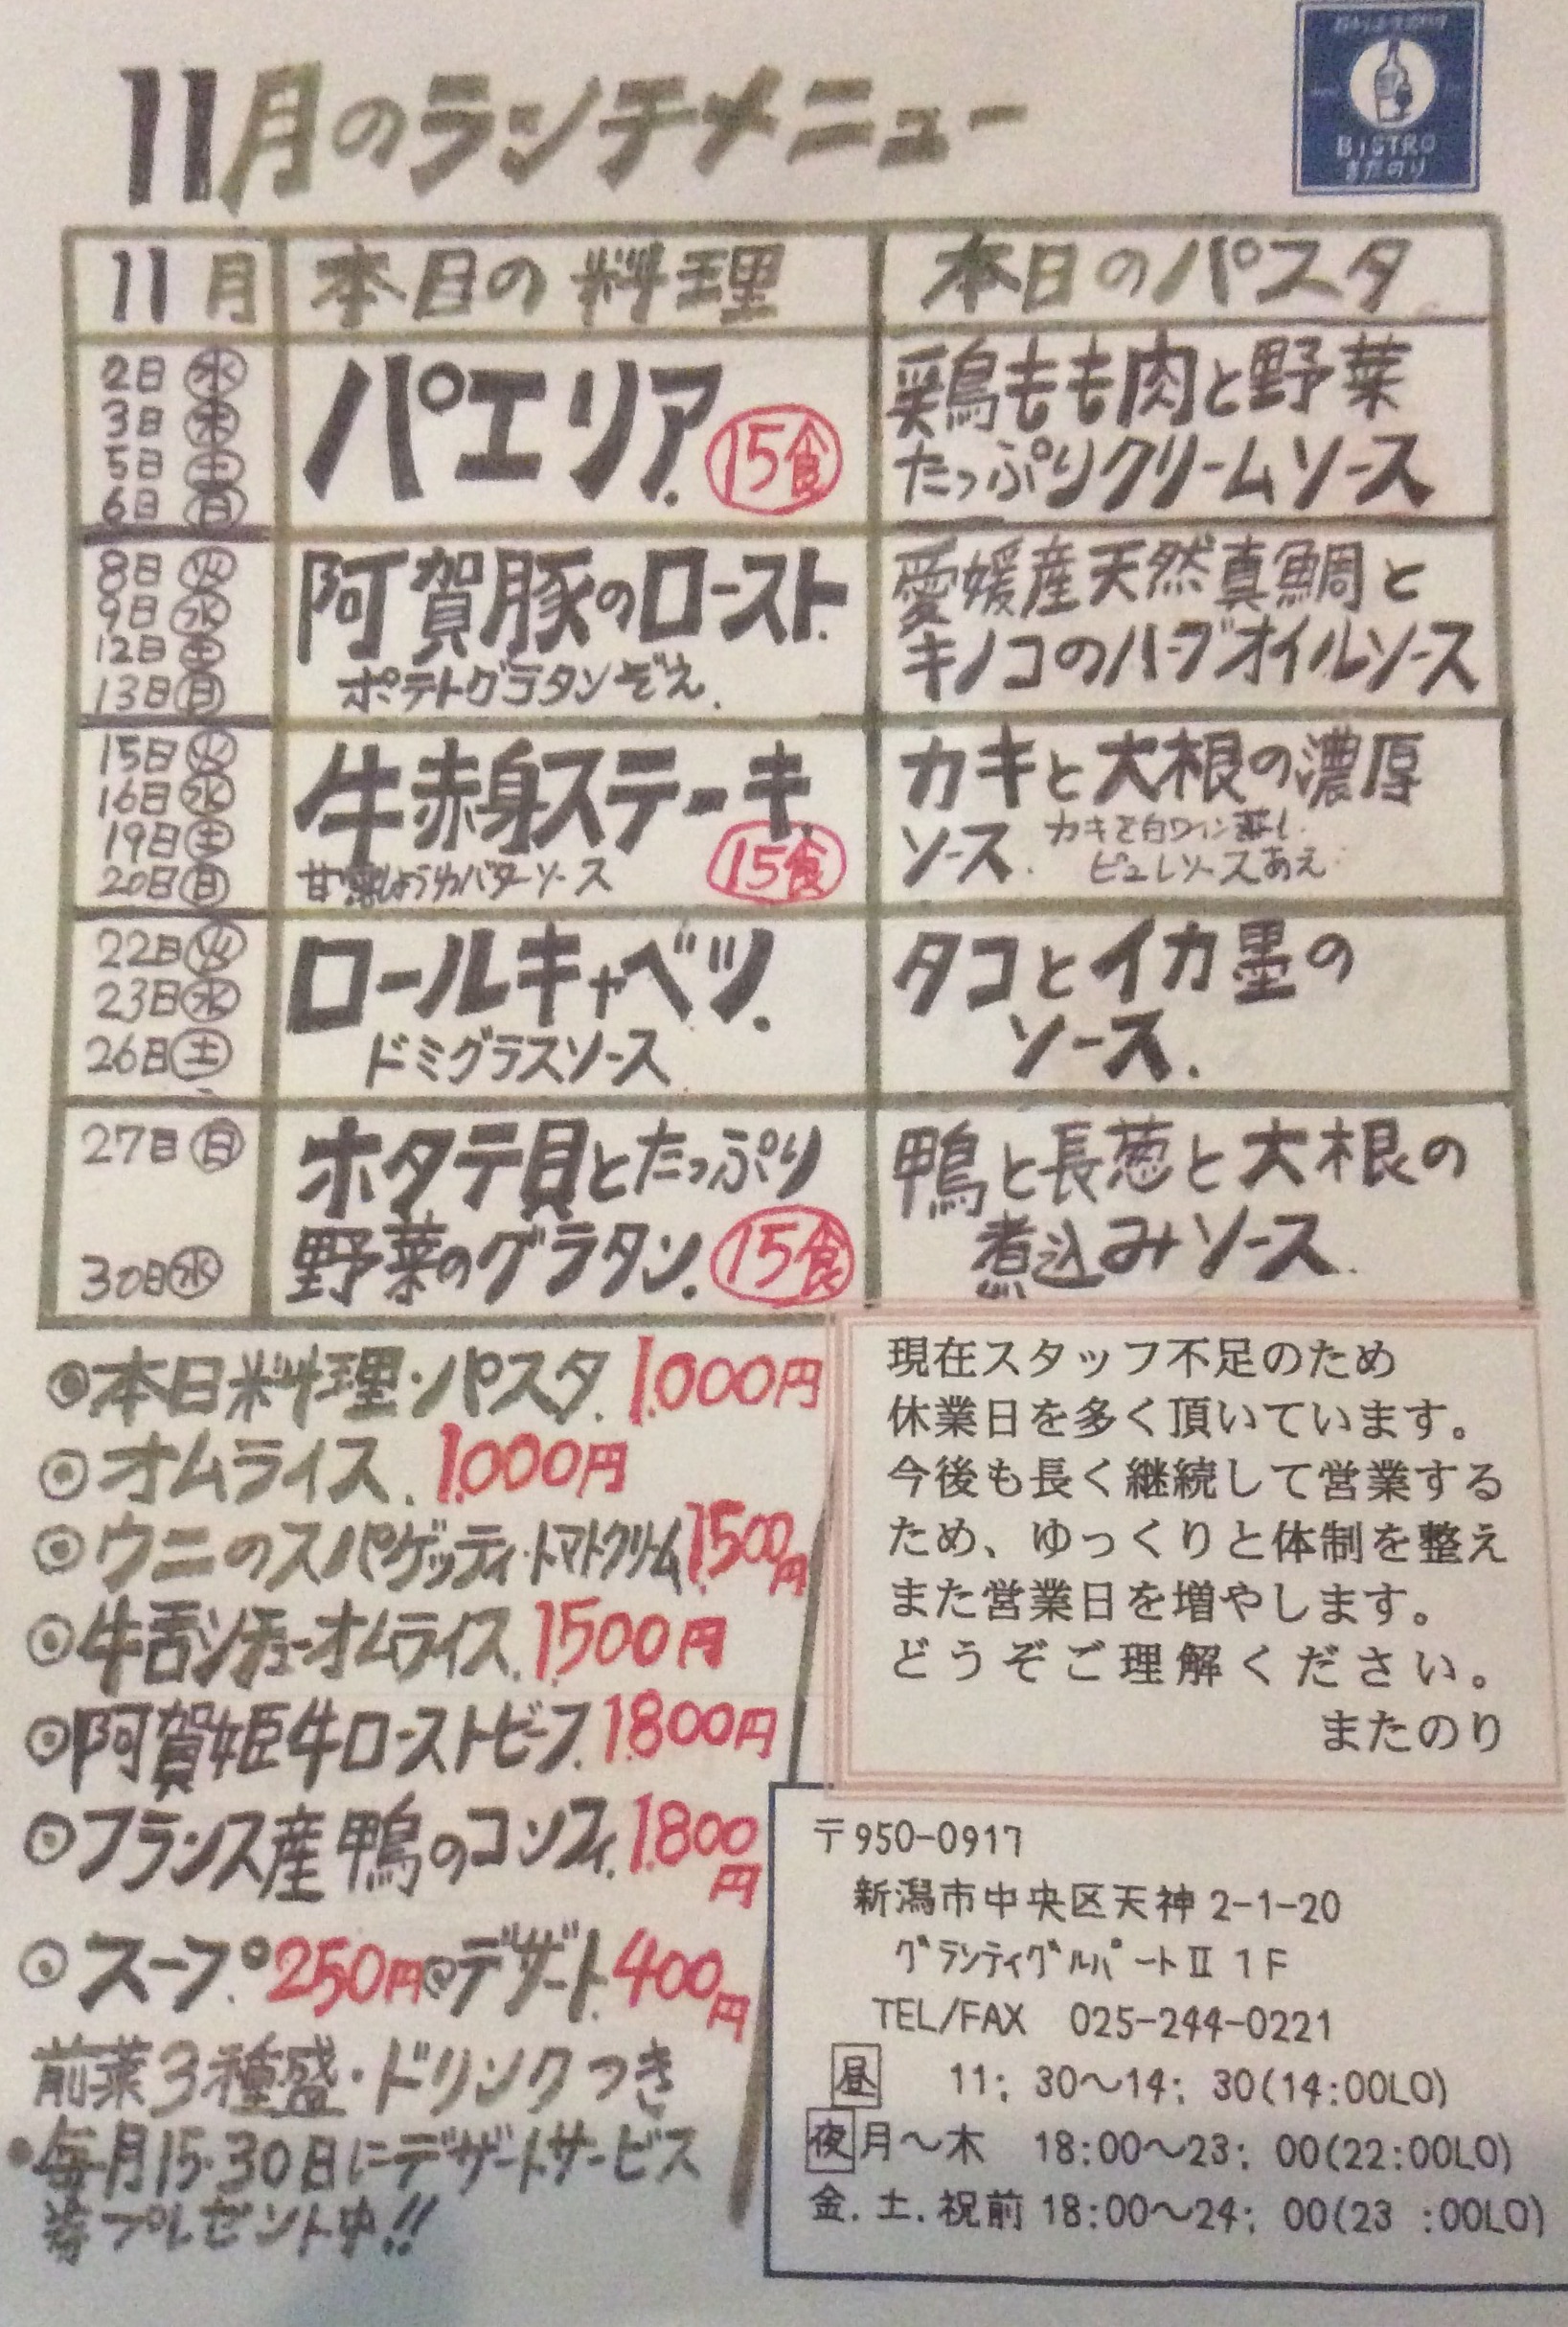 11月のランチメニュー
BISTRO
またのり
11月 本日の料理 本日のパスタ
2日㊌
3日㊍
5日㊏
6日㊐
パエリア. 15食
鶏もも肉と野菜
たっぷりクリームソース
8日㊋
9日㊌
12日㊏
13日㊐
阿賀豚のロースト.
ポテトグラタンぞえ.
愛媛産天然真鯛と
キノコのハーブオイルソース
15日㊋
16日㊌
19日㊏
20日㊐
牛赤身ステーキ.
しょうゆバターソース 15食
カキと大根の濃厚
ソース. カキを白ワイン蒸し.
ピュレソースあえ.
22日㊋
23日㊌
26日㊏
ロールキャベツ.
ドミグラスソース
タコとイカ墨の
ソース.
27日㊐
30日㊌
ホタテ貝とたっぷり
野菜のグラタン. 15食
鴨と長葱と大根の
煮込みソース.
◉本日料理・パスタ. 1.000円
◉オムライス. 1.000円
◉ウニのスパゲッティ・トマトクリーム 1.500円
◉牛舌シチューオムライス. 1.500円
◉阿賀姫牛ローストビーフ. 1.800円
◉フランス産鴨のコンフィ. 1.800円
◉スープ. 250円◉デザート. 400円
前菜3種盛・ドリンクつき
•毎月15.30日にデザートサービス
券プレゼント中!!
現在スタッフ不足のため
休業日を多く頂いています。
今後も長く継続して営業する
ため、ゆっくりと体制を整え
また営業日を増やします。
どうぞご理解ください。
またのり
〒950-0917
新潟市中央区天神2-1-20
グランティグルパートⅡ 1F
TEL/FAX 025-244-0221
昼 11; 30〜14; 30(14:00LO)
夜月〜木 18:00〜23; 00(22:00LO)
金.土.祝前 18:00〜24; 00(23 :00LO)